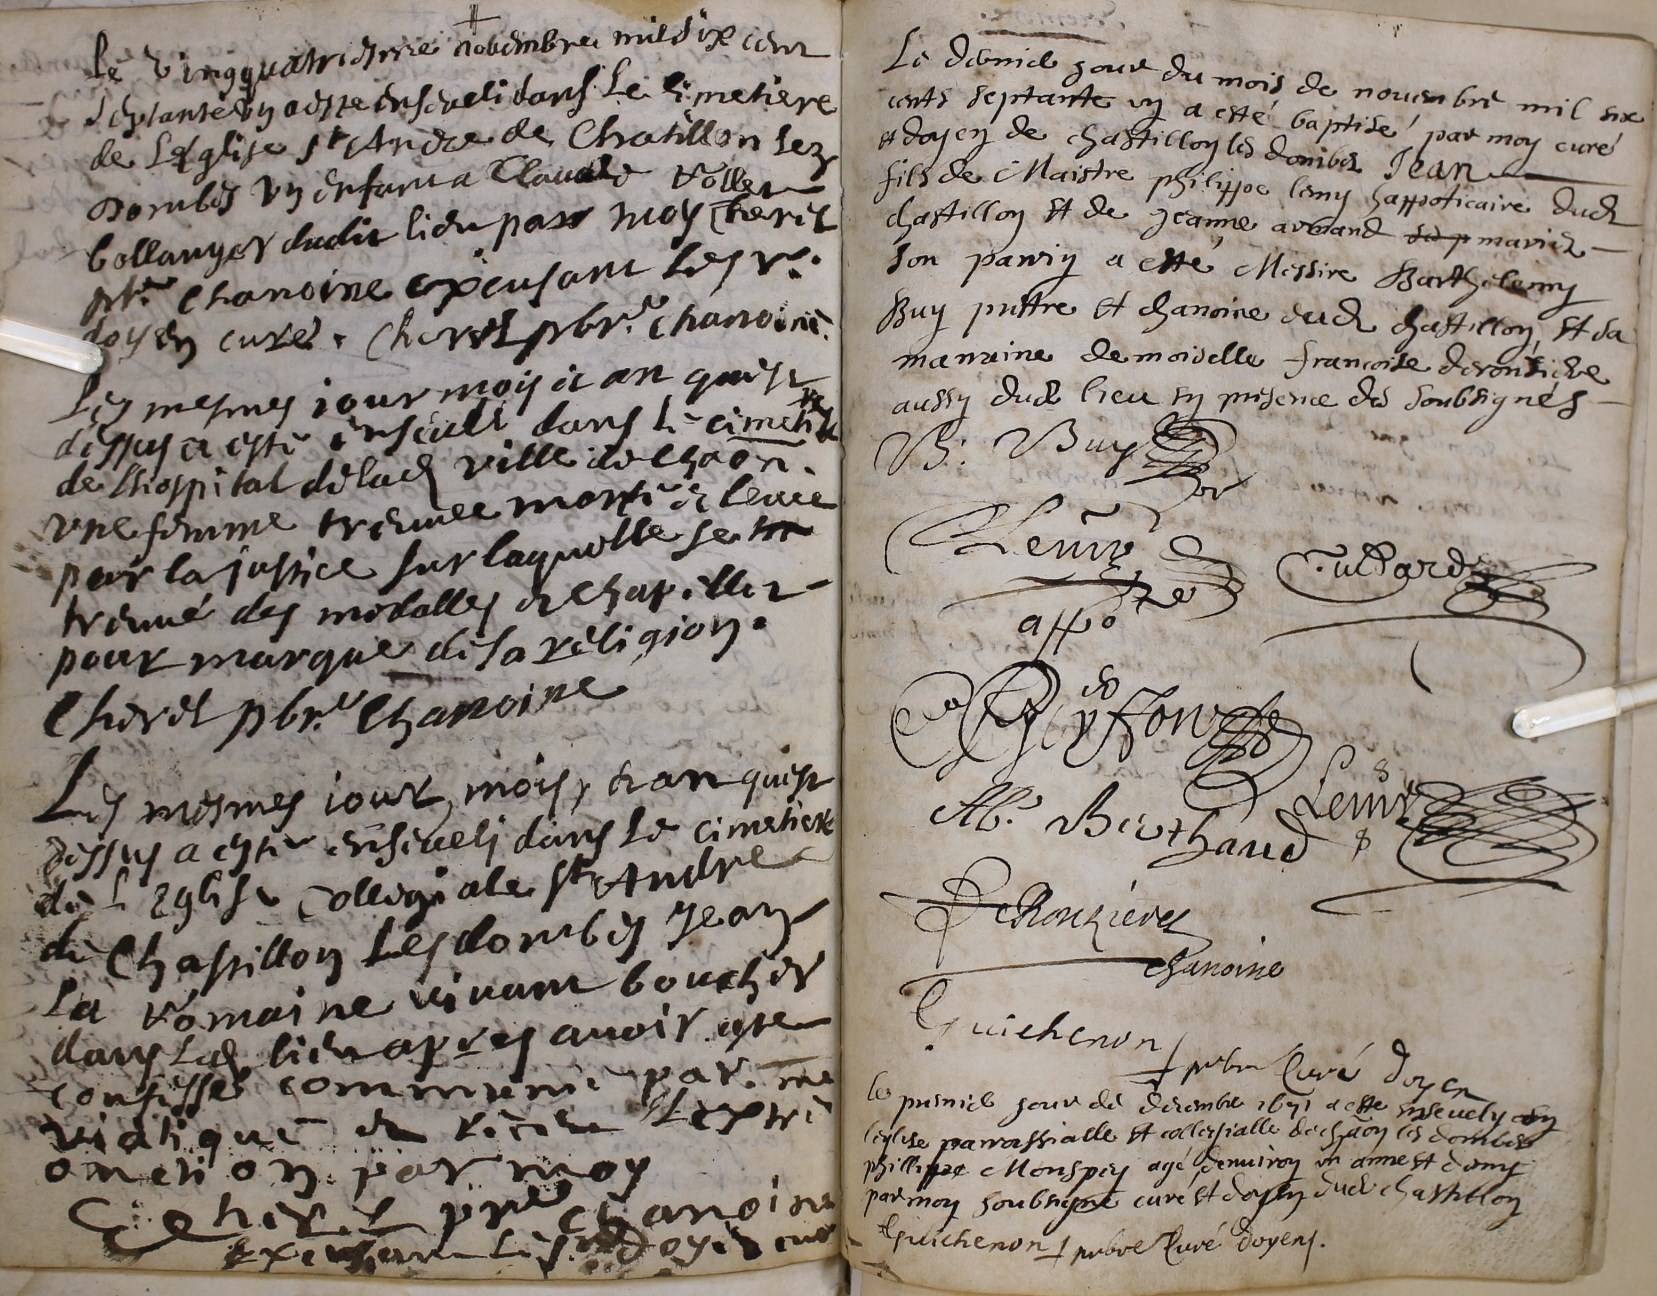 Le vingquatriesme novembre mil six cent
septante un a esté enseveli dans le cimetiere
de Leglise st Andre de Chatillon lez
Dombes un enfant a Claude Vollet
bollanger dudit lieu par moy Cheres
pbr. Chanoine excusant les sr.
doyen curé. Cheres pbr. Chanoine.
Les mesmes iour mois et an quest
dessus a esté enseveli dans le cimetiere
de Lhospital de lad ville de Chaon.
une femme treuvee morte et levee
par la justice sur laquelle se
treuvé des medalles et chapellet
pour marque de sa religion.
Cheres pbr. Chanoine
Les mesmes iour, mois, et an quest
dessus a esté enseveli dans le cimetiere
de L Eglise Collegiale st Andre
de Chastillon les dombes Jean
La Romaine vivant boucher
dans lad lieu apres avoir este
confessé communié par
viatique et receu Lextre
onction par moy
Cheres pre chanoine
excusant Les doyen curé
Le dernier jour du mois de novembre mil six
cents septante un a esté baptisé par moy curé
et doyen de chastillon les dombes Jean
fils de Maistre philippe lemy happoticaire dud
chastillon et de jeanne arband mariez
Son parrin a esté Messire Barthelemy
Buy prettre et chanoine dud chastillon, et sa
marraine demoiselle francoise derontiere
aussy dud lieu en presence des soubsignés
B. Buy
Lemy
appo
Cullard
Ab. Berthaud
Lemy
DeRonzieres
chanoine
Guichenon
pbre Curé doyen
le premier jour de decembre 1671 a esté ensevely en
leglise parrossialle et collegialle de chaon les dombes
phillippe Monspey agé denviron un anne et demy
par moy soubsigné curé et doyen dud chastillon
Guichenon pbre Curé doyen.